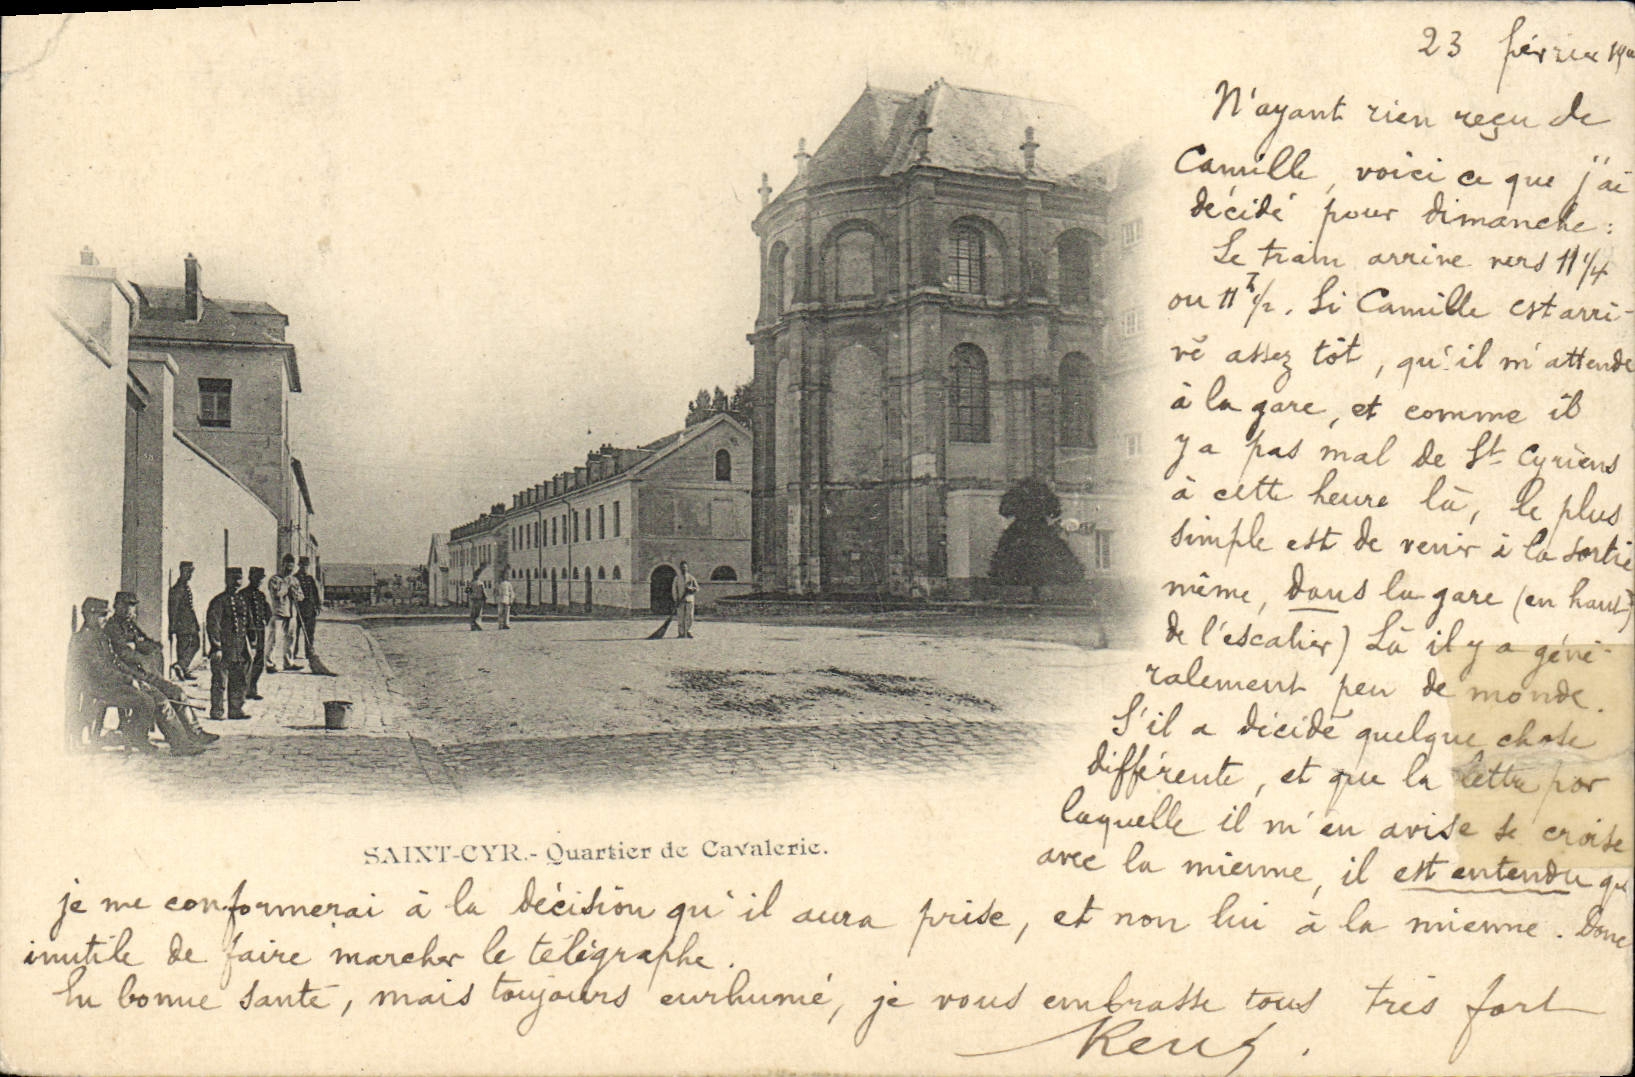 23 février
N'ayant rien reçu de
Camille, voici ce que j'ai
décidé pour dimanche :
Le train arrive vers 11 1/4
ou 11 1/2. Si Camille est arri-
vé assez tôt, qu'il m'attende
à la gare, et comme il
y a pas mal de St Cyriens
à cette heure là, le plus
simple est de venir à la sortie
même, dans la gare (en haut
de l'escalier) Là il y a géné-
ralement peu de monde.
S'il a décidé quelque chose
différente, et que la lettre par
laquelle il m'en avise se croise
avec la mienne, il est entendu que
SAINT-CYR.- Quartier de Cavalerie.
je me conformerai à la décision qu'il aura prise, et non lui à la mienne. Donc
inutile de faire marcher le télégraphe.
En bonne santé, mais toujours enrhumé, je vous embrasse tous très fort
René.